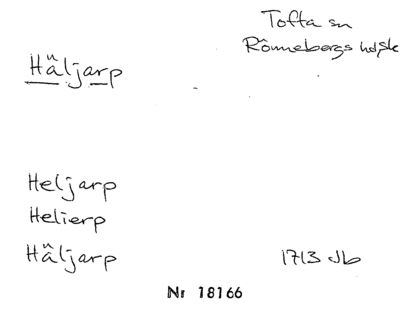 Tofta sn
Rönnebergs hd Sk
Häljarp
Heljarp
Helierp
Häljarp 1713 Jb
Nr 18166